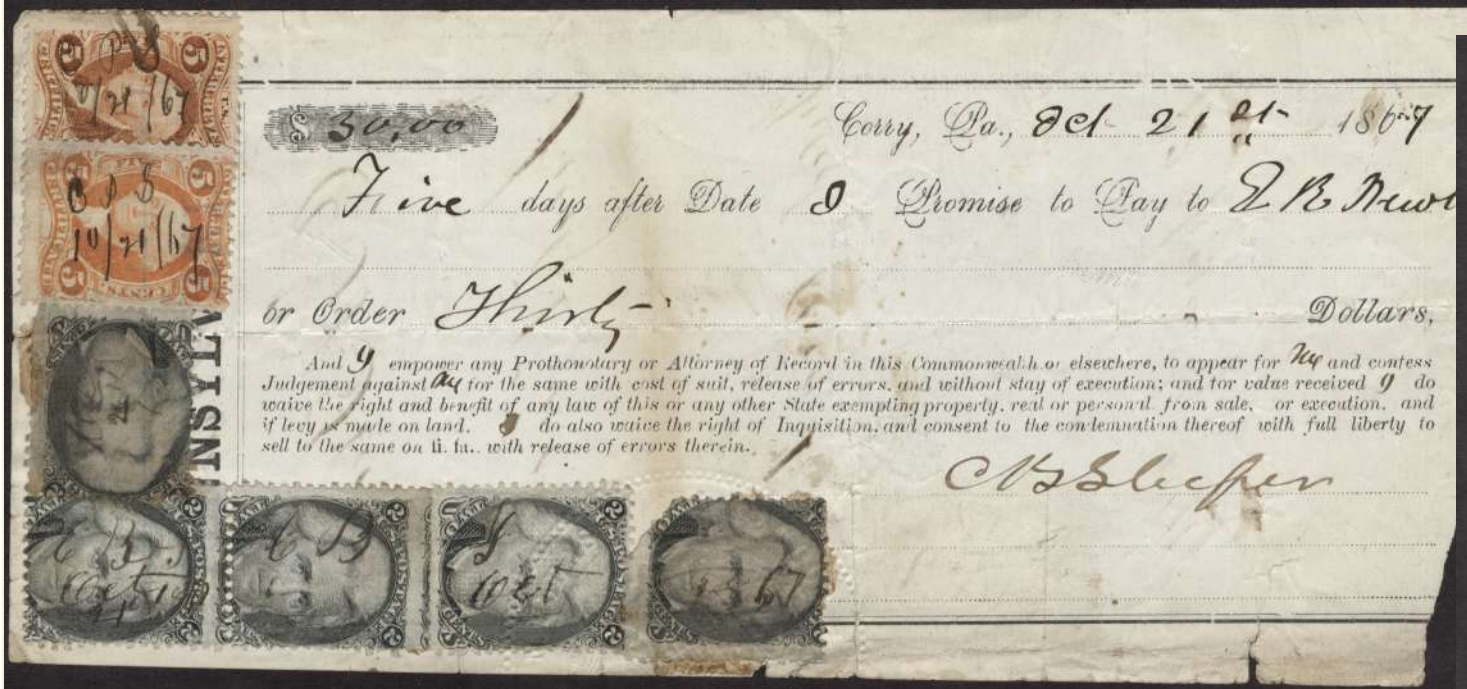 $ 30,00
Corry, Pa., Oct 21st 1867
Five days after Date I Promise to Pay to
or Order Thirty Dollars,
And I empower any Prothonotary or Attorney of Record in this Commonwealth or elsewhere, to appear for me and confess
Judgement against me for the same with cost of suit, release of errors, and without stay of execution; and for value received I do
waive the right and benefit of any law of this or any other State exempting property, real or personal from sale, or execution, and
if levy is made on land, I do also waive the right of Inquisition, and consent to the condemnation thereof with full liberty to
sell to the same on fi. fa., with release of errors therein.
NSYLV
5 5
10/21/67
C B S
10/21/67
5 CENTS. 5
C B
Oct
67